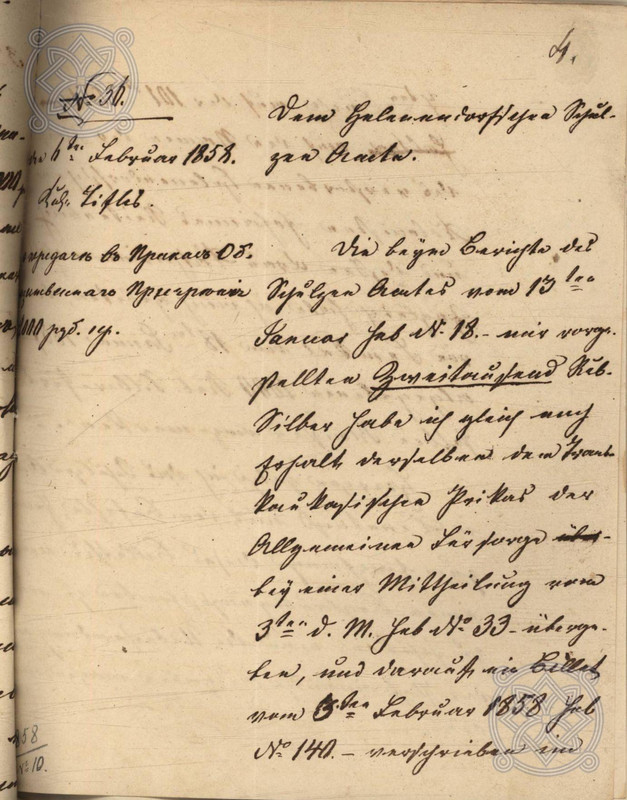 4.
№ 36.
6ten Februar 1858.
Tiflis.
передачѣ въ Приказъ Об-
щественнаго Призрѣнія
000 руб. ср.
Dem Helenendorfschen Schul-
zen Amte.
Die beym Berichte des
Schulzen Amtes vom 13ten
Januar sub № 18.- mir vorge-
stellten Zweitausend Rub.
Silber habe ich gleich nach
Erhalt derselben dem Trans-
kaukasischen Prikas der
Allgemeinen Fürsorge über-
bey einer Mittheilung vom
3ten d. M. sub № 33- überge-
ben, und darauf ein Billet
vom 5ten Februar 1858 sub
№ 140.- verschrieben im
1858
№ 10.